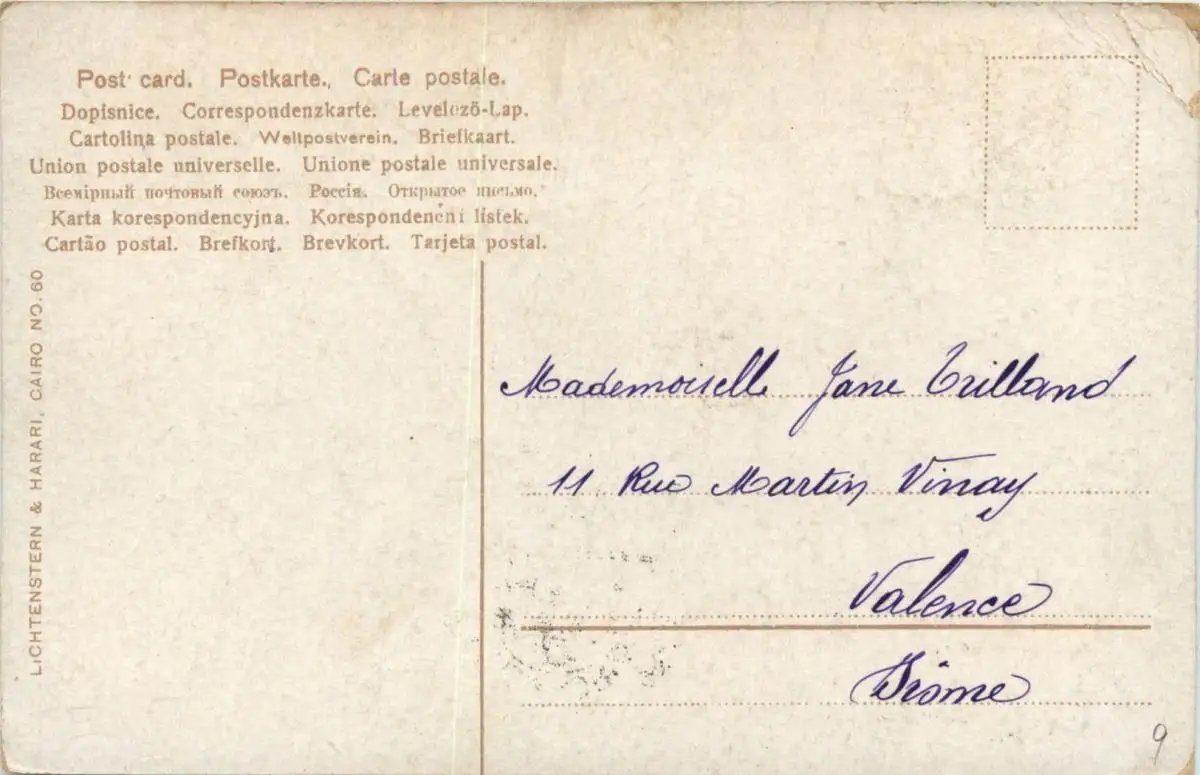 Post card. Postkarte., Carte postale.
Dopisnice. Correspondenzkarte. Levelező-Lap.
Cartolina postale. Weltpostverein. Briefkaart.
Union postale universelle. Unione postale universale.
Всемірный почтовый союзъ. Россія. Открытое письмо.
Karta korespondencyjna. Korespondenční lístek.
Cartão postal. Brefkort. Brevkort. Tarjeta postal.
LICHTENSTERN & HARARI, CAIRO NO. 60
Mademoiselle Jane Trilland
11 Rue Martin Vinay
Valence
Drôme
9